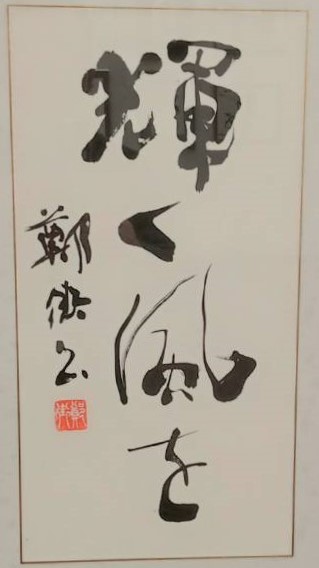 輝く風を
鄭